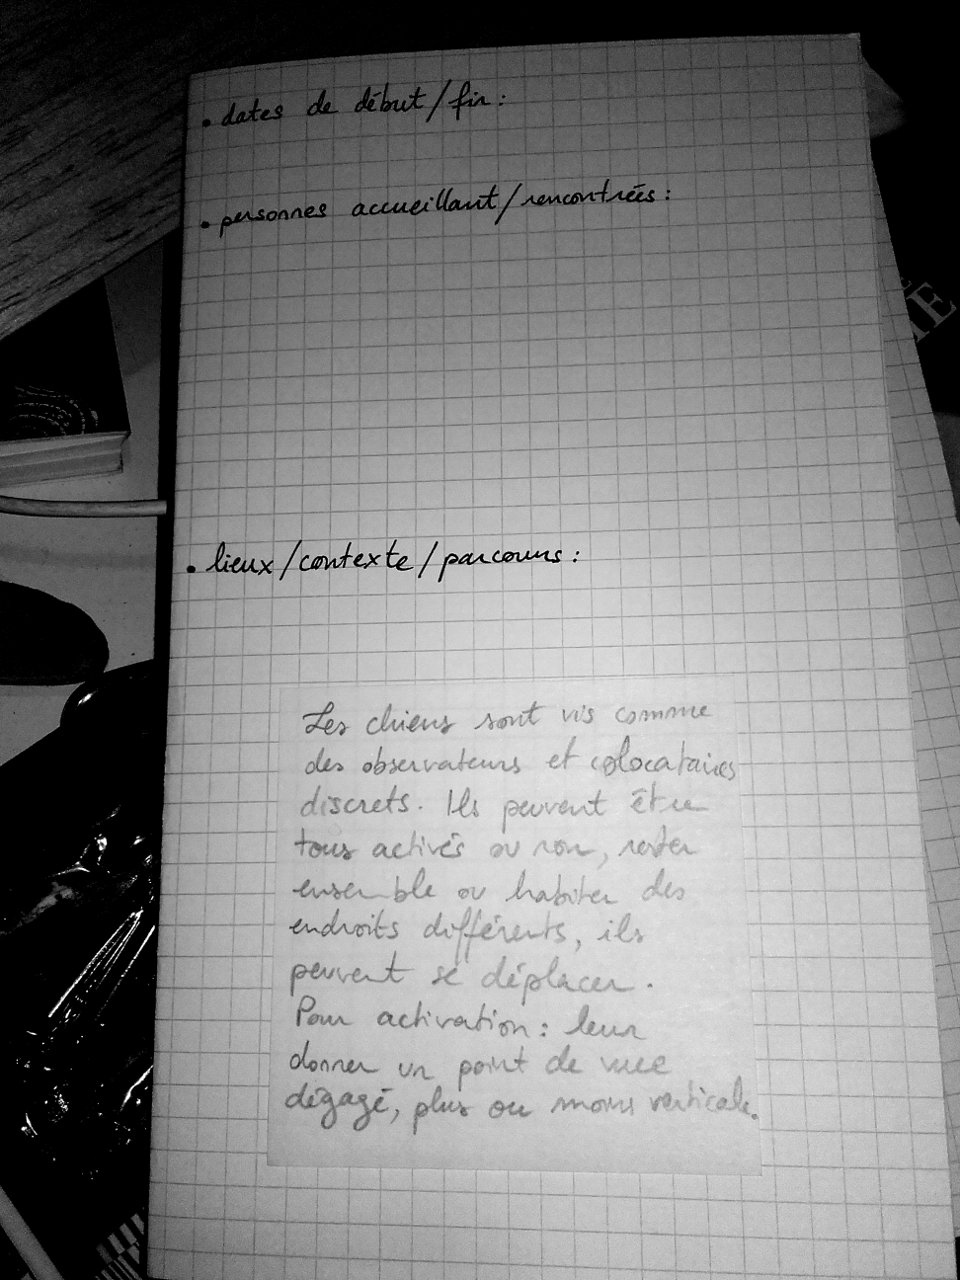 • dates de début/fin :
• personnes accueillant/rencontrées :
• lieux/contexte/parcours :
Les chiens sont vis comme
des observateurs et colocataires
discrets. Ils peuvent être
tous activés ou non, rester
ensemble ou habiter des
endroits différents, ils
peuvent se déplacer.
Pour activation : leur
donner un point de vue
dégagé, plus ou moins verticale.